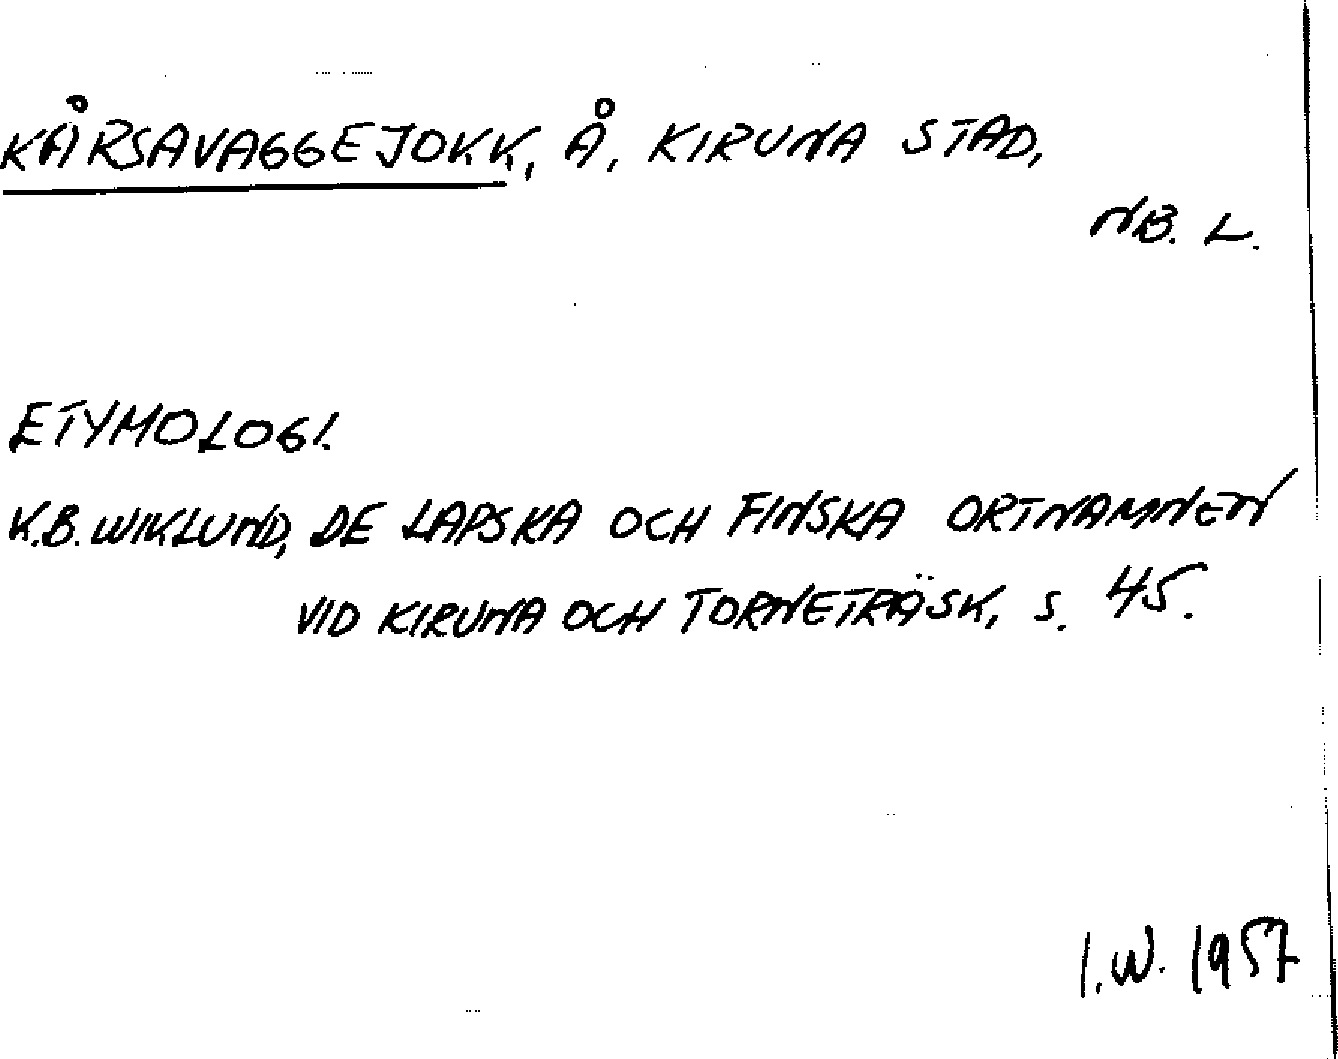 KÅRSAVAGGEJOKK, Å, KIRUNA STAD,
NB. L.
ETYMOLOGI.
K.B. WIKLUND, DE LAPSKA OCH FINSKA ORTNAMNEN
VID KIRUNA OCH TORNETRÄSK, S. 45.
I.W. 1957